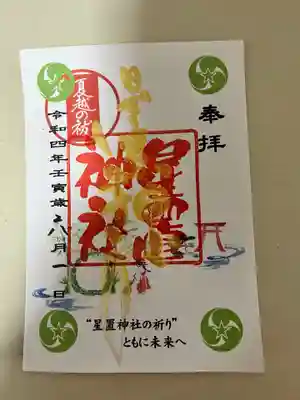 奉拝
星置
神社
夏越の祓
令和四年壬寅歳
八月一日
"星置神社の祈り"
ともに未来へ